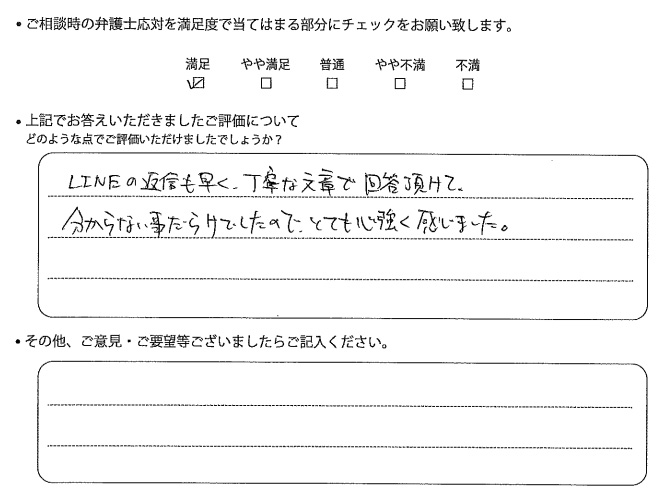 ・ご相談時の弁護士応対を満足度で当てはまる部分にチェックをお願い致します。
満足 やや満足 普通 やや不満 不満
☑ □ □ □ □
・上記でお答えいただきましたご評価について
どのような点でご評価いただけましたでしょうか？
LINEの返信も早く、丁寧な文章で回答頂けて、
分からない事だらけでしたので、とても心強く感じました。
・その他、ご意見・ご要望等ございましたらご記入ください。